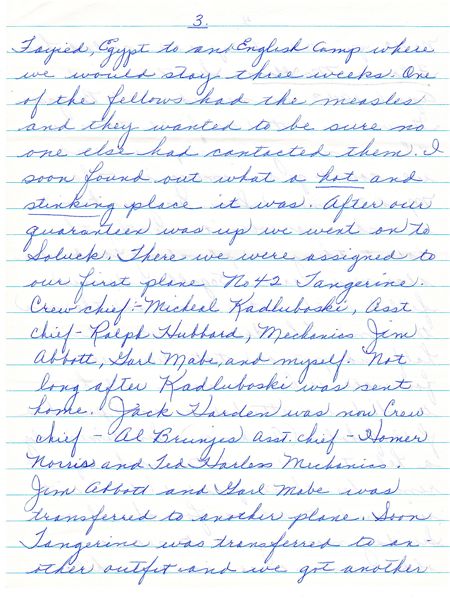 3.
Fayied, Egypt to an English Camp where
we would stay three weeks. One
of the fellows had the measles
and they wanted to be sure no
one else had contacted them. I
soon found out what a hot and
stinking place it was. After our
quaranteen was up we went on to
Soluck. There we were assigned to
our first plane No 42 Tangerine.
Crew chief - Micheal Kadluboski, Asst
chief - Ralph Hubbard, Mechanics Jim
Abbott, Garl Mabe, and myself. Not
long after Kadluboski was sent
home. Jack Harden was now Crew
chief - Al Brunjes asst. chief - Homer
Norris and Ted Harless Mechanics.
Jim Abbott and Garl Mabe was
transferred to another plane. Soon
Tangerine was transferred to an-
other outfit and we got another